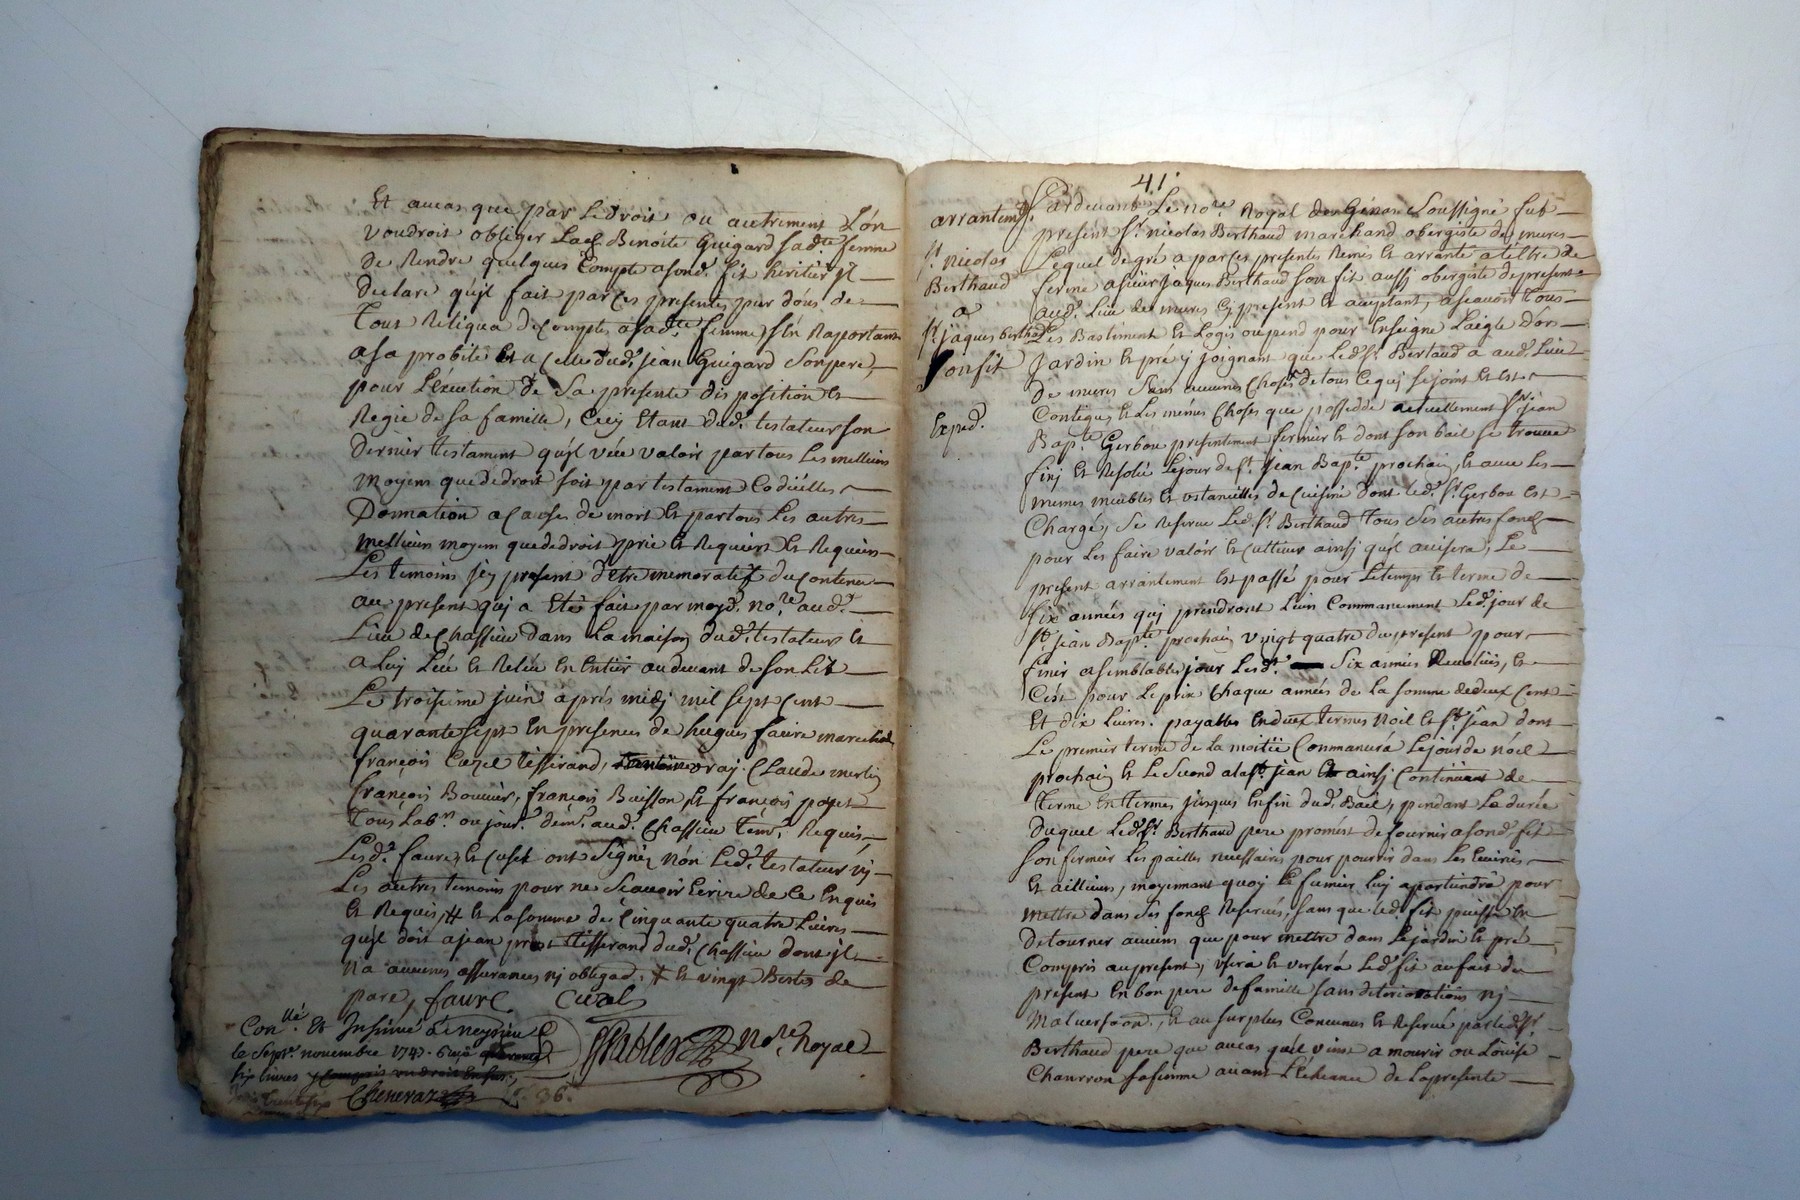 Et aucas que par Ledroit ou autrement L'on
voudroit obliger Lad. Benoite Guigard sadte femme
de Rendre quelques Compte asond. fit heritier jl
declare qu'jl fait par Ces presentes pur don de
Tout Reliqua de Comptes a sadte femme, s'en Raportant
a sa probité Et a Celle dud. jean Guigard Son pere,
pour L'Execution de Sa presente disposition Et
Regie de sa famille, Cecy Etant dud. testateur son
dernier testament qu'jl veut valoir par tous Les meilleurs
moyens que de droit soit par testament Codicilles
Donnation a Cause de mort Et par tous Les autres
meilleurs moyens que de droit prie Et Requiers Et Requiers
Les temoins jcy present d'Etre memoratif du contenu
au present quj a Eté fait par moyd. nore aud.
Lieu de Chassieu dans La maison dud. testateur Et
a Luj Leu Et Releu En Entier audevant de son Lit
Le troisieme juin aprés midj mil sept Cent
quarante sept En presence de hugues faure marechal
françois Cuzel tisserand, vray. Claude merlin
françois Bouvier, françois Buisson Et françois payet
Tous Labrs ou jour. demt. aud. Chassieu tem. Requis,
Lesd. faure, Et Cusel ont Signéz Non Led. testateur nj
Les autres temoins pour ne Sçavoir Ecrire de Ce Enquis
Et Requis, # Et La somme de Cinquante quatre Livres
qu'jl doit a jean tisserand dud. Chassieu dont jl
n'a aucunes assurances nj obligaon, # Et vingt Bertes de
pare, faure Cuzel
Conllé. Et Insinué à meyzieu
le Septe. novembre 1747. Reçu
six livres
Nore Royal
Chenevaz
36.
41
arrantemt.
sr nicolas
Berthaud
a
sr jaques berthaud
son fit
Exped.
Pardevant Le nore Royal de Genas Soussigné fut
present sr. nicolas Berthaud marchand obergiste de mures
Lequel de gré a par Ces presentes Remis Et arranté a titre de
ferme a sieur jaques Berthaud son fit aussj obergiste de present
aud. Lieu de mures Cy present Et acceptant, a sçavoir tous
Les Bastiment Et Logis ou pend pour Enseigne L'aigle d'or
jardin Et pré y joignant que Led. sr. Bertaud a aud. Lieu
De mures Sans aucunes Choses de tous Ce quj se joint Et Est
Contigus Et Les mêmes Choses que possedde actuellement sr. jean
Bapte Gerbou presentement fermier Et dont son bail se trouve
finj Et Resolu Lejour de st. jean Bapte prochain, Et avec Les
memes meubles Et ustancilles de Cuisine dont Led. sr Gerbou Est
Chargé, Se Reserve Led. sr. Berthaud Tous Ses autres fonds
pour Les faire valoir Et Cultiver ainsj qu'jl avisera, Le
present arrantement Est passé pour Le temps Et terme de
six années quj prendront Leur Commancement Led. jour de
st. jean Bapte prochain vingt quatre du present pour
finir a semblable jour Lesdt. Six années Revolües, Et
C'est pour Le prix Chaque années de La somme de deux Cent
Et dix Livres. payables En deux termes Nöel Et st. jean dont
Le premier terme de La moitié Commancera Lejour de nöel
prochain Et Le Second a La st. jean Et ainsj Continuant de
terme En termes jusques En fin dud. Bail, pendant La durée
Duquel Led. sr. Berthaud pere promest de fournir a sond. fit
son fermier Les pailles necessaires pour pourrir dans Les Ecuries
Et ailleurs, moyennant quoj Le fumier Luj apartiendra pour
mettre dans ses fonds Reservés, sans que Led. fit puisse En
Detourner aucuns que pour mettre dans Le jardin Et pré
Compris au present, usera Et versera Led. fit au fait du
present En bon pere de famille sans deteriorations nj
Malversaon., Et au surplus Convenus Et Reservé par Led. sr.
Berthaud pere que aucas qu'jl vinse a mourir ou Loüise
Chanrron sa femme avant L'Echeance de La presente